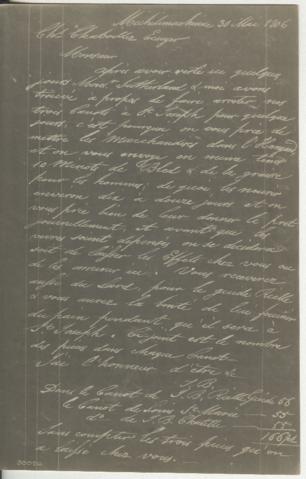 Michilimackinac 30 Mai 1806
Chs. Chaboillez Ecuyer
Monsieur
Après avoir resté ici quelques
jours Monsr. Sutherland & moi avons
trouvé à propos de faire arreter nos
trois Canots à St. Joseph pour quelque
tems, c'est pourquoi on vous prie de
mettre les Marchandises dans l'Hangard
et on vous envoy en meme tems
10 Minots de Bled & de la graisse
pour les hommes, de quoi les nourir
environ dix à douze jours et on
vous prie bien de leur donner le port
et avant que les
vivres soient depensés on se decidera
soit de laisser les Effets chez vous ou
de les amener ici. Vous recevrez
aussi du Lard, pour le guide Rielle
& vous aurez la bonté de lui fournir
du pain pendant qu'il sera à
St. Joseph. Ci-joint est le nombre
des pieces dans chaque Canot.
J'ai l'honneur d'être &c
J. B.
Dans le Canot de J. B. Rielle Guide 56
le Canot de Louis St. Marie 55
do de J. B. 55
166 ps
Sans compter les trois pieces qu'on
a laissé chez vous.